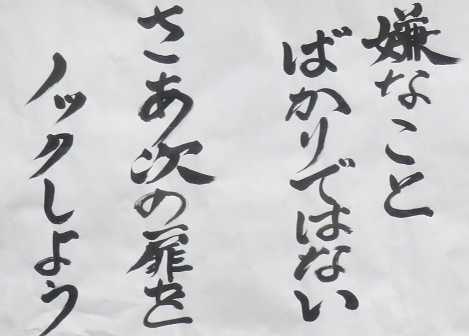 嫌なこと
ばかりではない
さあ次の扉を
ノックしよう